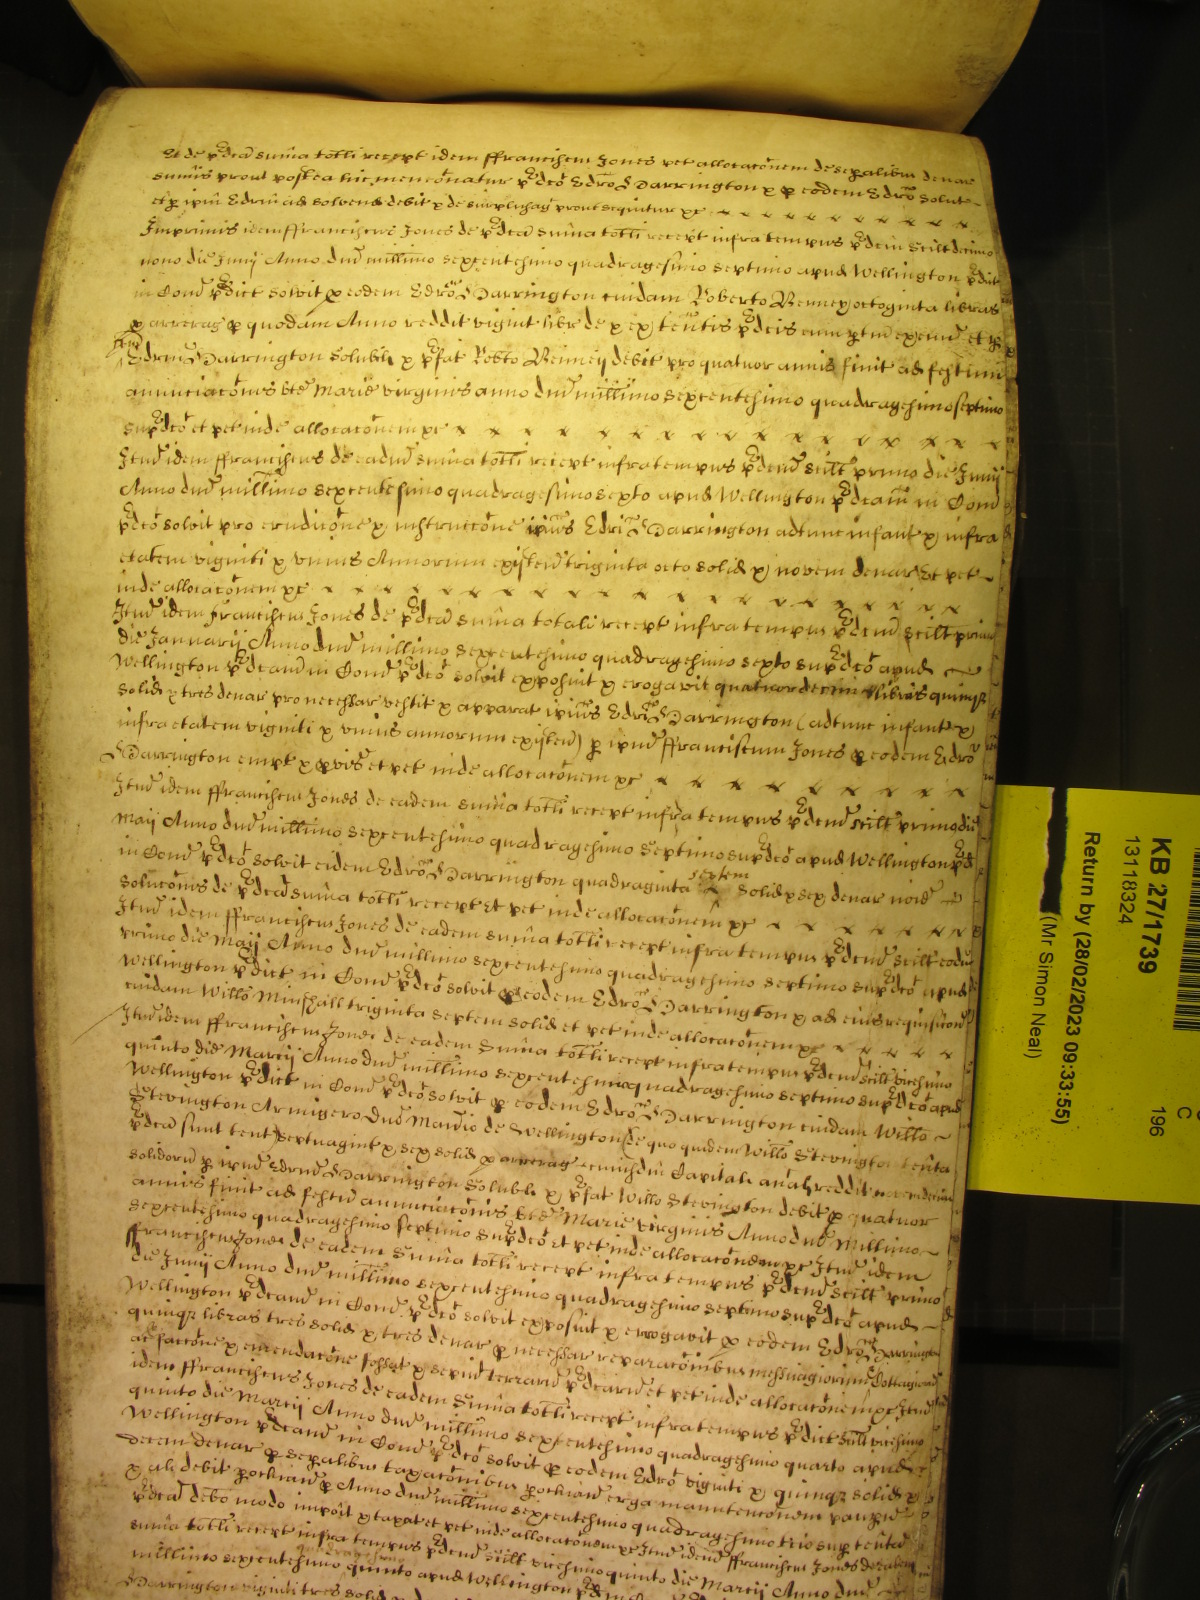 De p'dca sum̃a totli recept idem ffranciscus Jones pet allocac̃onem de sep'alibus denar
sum̃is prout postea hic menc̃onatur p'dco Edrõ Darrington & p eodem Edrõ solut
et p ip̃m Edrũ ad solvend debit & de surplusag prout sequitur &c
Imprimis idem ffranciscus Jones de p'dca sum̃a totli recept infra tempus p'dcm̃ scilt decimo
nono die Junij Anno Dnĩ millimo sexcentesimo quadragesimo septimo apud Wellington p'dict
in Com̃ p'dict solvit p eodem Edrõ Darrington cuidam Roberto Benney octoginta libras
p arrerag quodam Anno reddit vigint libr de & ex teñtis p'dcis cum ptiñ exeuñ et p
dcm̃ Edrũ Darrington solubli & p'fat Robto Benney debit pro quatuor annis finit ad festum
annunciac̃onis btẽ Marie virginis anno dnĩ millimo sexcentesimo quadragesimo septimo
sup'dco et pet inde allocac̃onem &c
Itm̃ idem ffranciscus de eadm̃ sum̃a totli recept infra tempus p'dcm̃ scilt primo die Junij
Anno dnĩ millimo sexcentesimo quadragesimo sexto apud Wellington p'dcam̃ in Com̃
p'dco solvit pro erudic̃one & instrucc̃one ip̃ius Edri Darrington adtunc infant & infra
etatem viginti & unius Annorum existeñ triginta octo solid & novem denar Et pet
inde allocac̃onem &c
Itm̃ idem ffranciscus Jones de p'dca sum̃a totali recept infra tempus p'dcm̃ scilt primo
die Januarij Anno dnĩ millimo sexcentesimo quadragesimo sexto sup'dco apud
Wellington p'dcam̃ in Com̃ p'dco solvit exposuit & erogavit quatuordecim libras quinqz
solid & tres denar pro necessar vestit & apparat ip̃ius Edri Darrington (adtunc infant &
infra etatem viginti & unius annorum existeñ) p ip̃um ffranciscum Jones p eodem Edrõ
Darrington empt & p'vis et pet inde allocac̃onem &c
Itm̃ idem ffranciscus Jones de eadem sum̃a totli recept infra tempus p'dcm̃ scilt primo die
Maij Anno dnĩ millimo sexcentesimo quadragesimo septimo sup'dco apud Wellington p'd
in Com̃ p'dco solvit eidem Edrõ Darrington quadraginta septem solid & sex denar noiẽ
soluc̃onis de p'dca sum̃a totli recept Et pet inde allocac̃onem &c
Itm̃ idem ffranciscus Jones de eadem sum̃a totli recept infra tempus p'dcm̃ scilt eodem
primo die Maij Anno dnĩ millimo sexcentesimo quadragesimo septimo sup'dco apud
Wellington p'dict in Com̃ p'dco solvit p eodem Edrõ Darrington & ad eius requisic̃on
cuidam Willo Minshall triginta septem solid et pet inde allocac̃onem &c
Itm̃ idem ffranciscus Jones de eadem sum̃a totli recept infra tempus p'dcm̃ scilt vicesimo
quinto die Marcij Anno dnĩ millimo sexcentesimo quadragesimo septimo sup'dco apud
Wellington p'dict in Com̃ p'dco solvit p eodem Edrõ Darrington cuidam Willo
Stevington Armigero Dnõ Manẽio de Wellington (de quo quidem Willo Stevington tenta
p'dca sunt tent) septuagint & sex solid p arrerag cuiusdm̃ Capitali añal reddit
solidoru p ip̃um Edrũ Darrington solubli & p'fat Willo Stevington debit p quatuor
annis finit ad festm̃ annunciac̃onis btẽ Marie virginis Anno dnĩ Millimo
sexcentesimo quadragesimo septimo sup'dco Et pet inde allocac̃onem &c Itm̃ idem
ffranciscus Jones de eadem Sum̃a totli recept infra tempus p'dcm̃ scilt primo
die Junij Anno dnĩ millimo sexcentesimo quadragesimo septimo sup'dco apud
Wellington p'dcam̃ in Com̃ p'dco solvit exposuit & errogavit p eodem Edrõ Darrington
quinqz libras tres solid & tres denar p necessar reparac̃onibus messuagiorum Cottagiorũ
ac facc̃one & emendac̃one fossat & sepiũ terrarũ p'dcarũ et pet inde allocac̃onem &c Itm̃
idem ffranciscus Jones de eadem Sum̃a totli recept infra tempus p'dict scilt vicesimo
quinto die Marcij Anno dnĩ millimo sexcentesimo quadragesimo quarto apud
Wellington p'dcam̃ in Com̃ p'dco solvit p eodem Edrõ viginti & quinqz solid &
decem denar p sep'alibus taxac̃onibus pochiañ erga manutenc̃onem paupũ
& ali debit pochiañ p Anno dnĩ millimo sexcentesimo quadragesimo trio sup tenta
p'dca debõ modo impõit & taxat et pet inde allocac̃onem &c Itm̃ idem ffranciscus Jones de eadem
sum̃a totli recept infra tempus p'dcm̃ scilt vicesimo quinto die Marcij Anno dnĩ
millimo sexcentesimo quadragesimo quinto apud Wellington p'd in Com̃
Darrington viginti tres solid
KB 27/1739
13118324
Return by (28/02/2023 09:33:55)
(Mr Simon Neal)
196
C